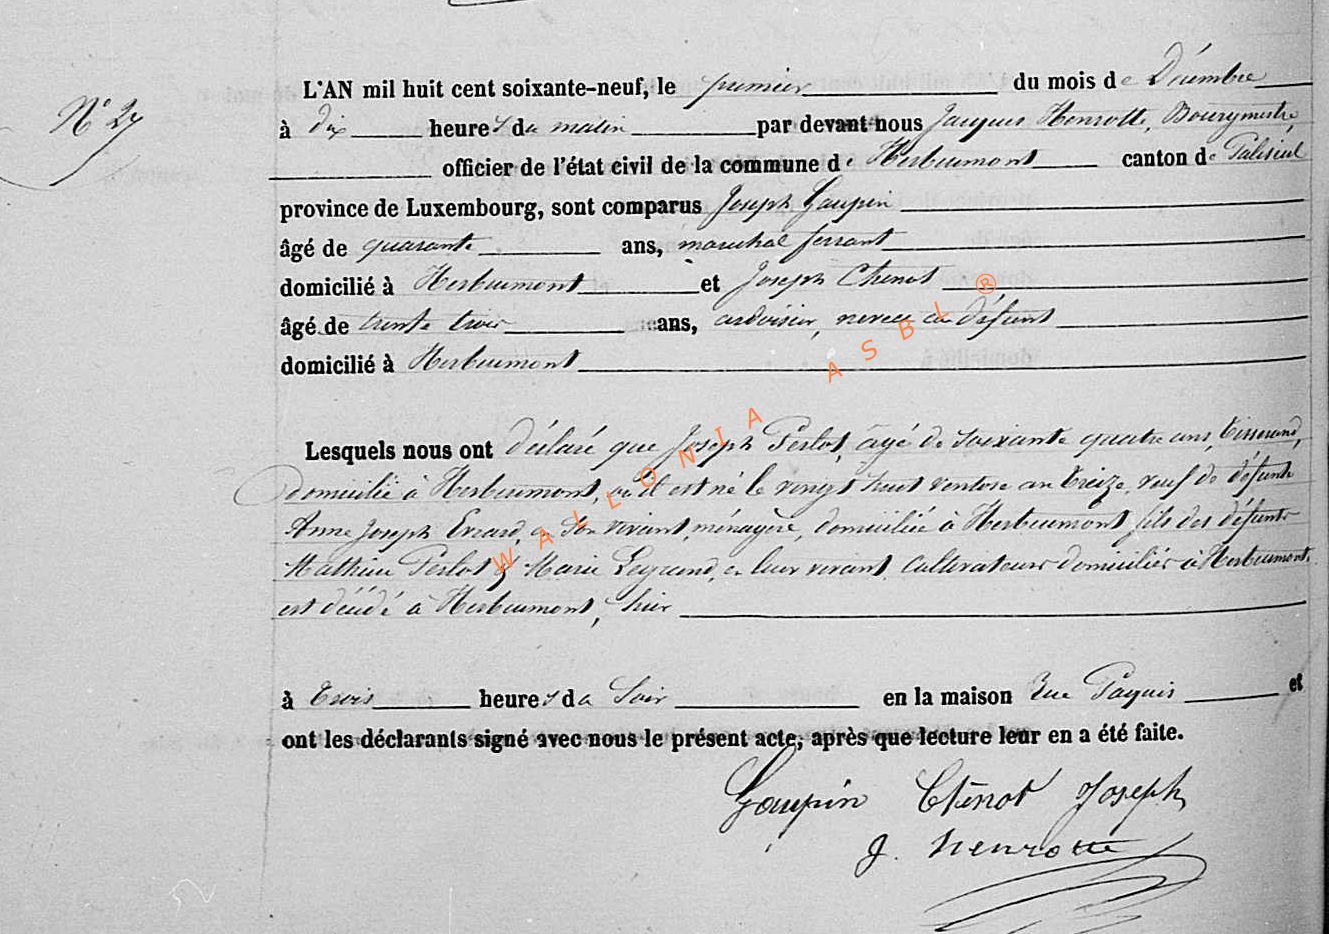 L'AN mil huit cent soixante-neuf, le premier du mois de Décembre
N° 27
à dix heures du matin par devant nous Jacques Henrotte, Bourgmestre,
officier de l'état civil de la commune de Herbeumont canton de Paliseul
province de Luxembourg, sont comparus Joseph Gaupin
âgé de quarante ans, maréchal ferrant
domicilié à Herbeumont et Joseph Chenot
âgé de trente trois ans, ardoisier, neveu du défunt
domicilié à Herbeumont
Lesquels nous ont déclaré que Joseph Perlot, âgé de soixante quatre ans, tisserand,
domicilié à Herbeumont, où il est né le vingt huit ventose an treize, veuf de défunte
Anne Joseph Evrard, en son vivant, ménagère, domiciliée à Herbeumont, fils des défunts
Mathieu Perlot & Marie Legrand, en leur vivant, cultivateurs domiciliés à Herbeumont.
est décédé à Herbeumont, hier
à trois heures du soir en la maison Rue Paquis et
ont les déclarants signé avec nous le présent acte, après que lecture leur en a été faite.
Gaupin Chénot Joseph
J. Henrotte
WALLONIA ASBL ®